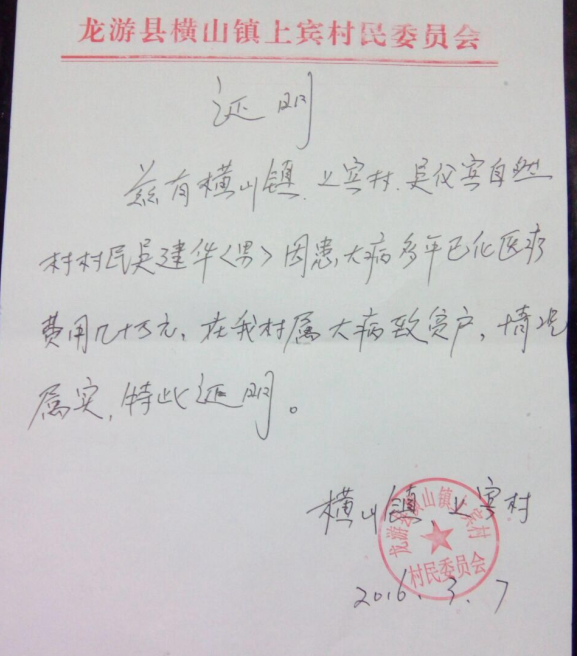 龙游县横山镇上宾村民委员会
证明
兹有横山镇、上宾村、吴仪宾自然
村村民吴建华<男>因患大病多年已化医疗
费用几十万元，在我村属大病致贫户，情况
属实，特此证明。
横山镇、上宾村
龙游县横山镇上宾村
村民委员会
2016.3.7